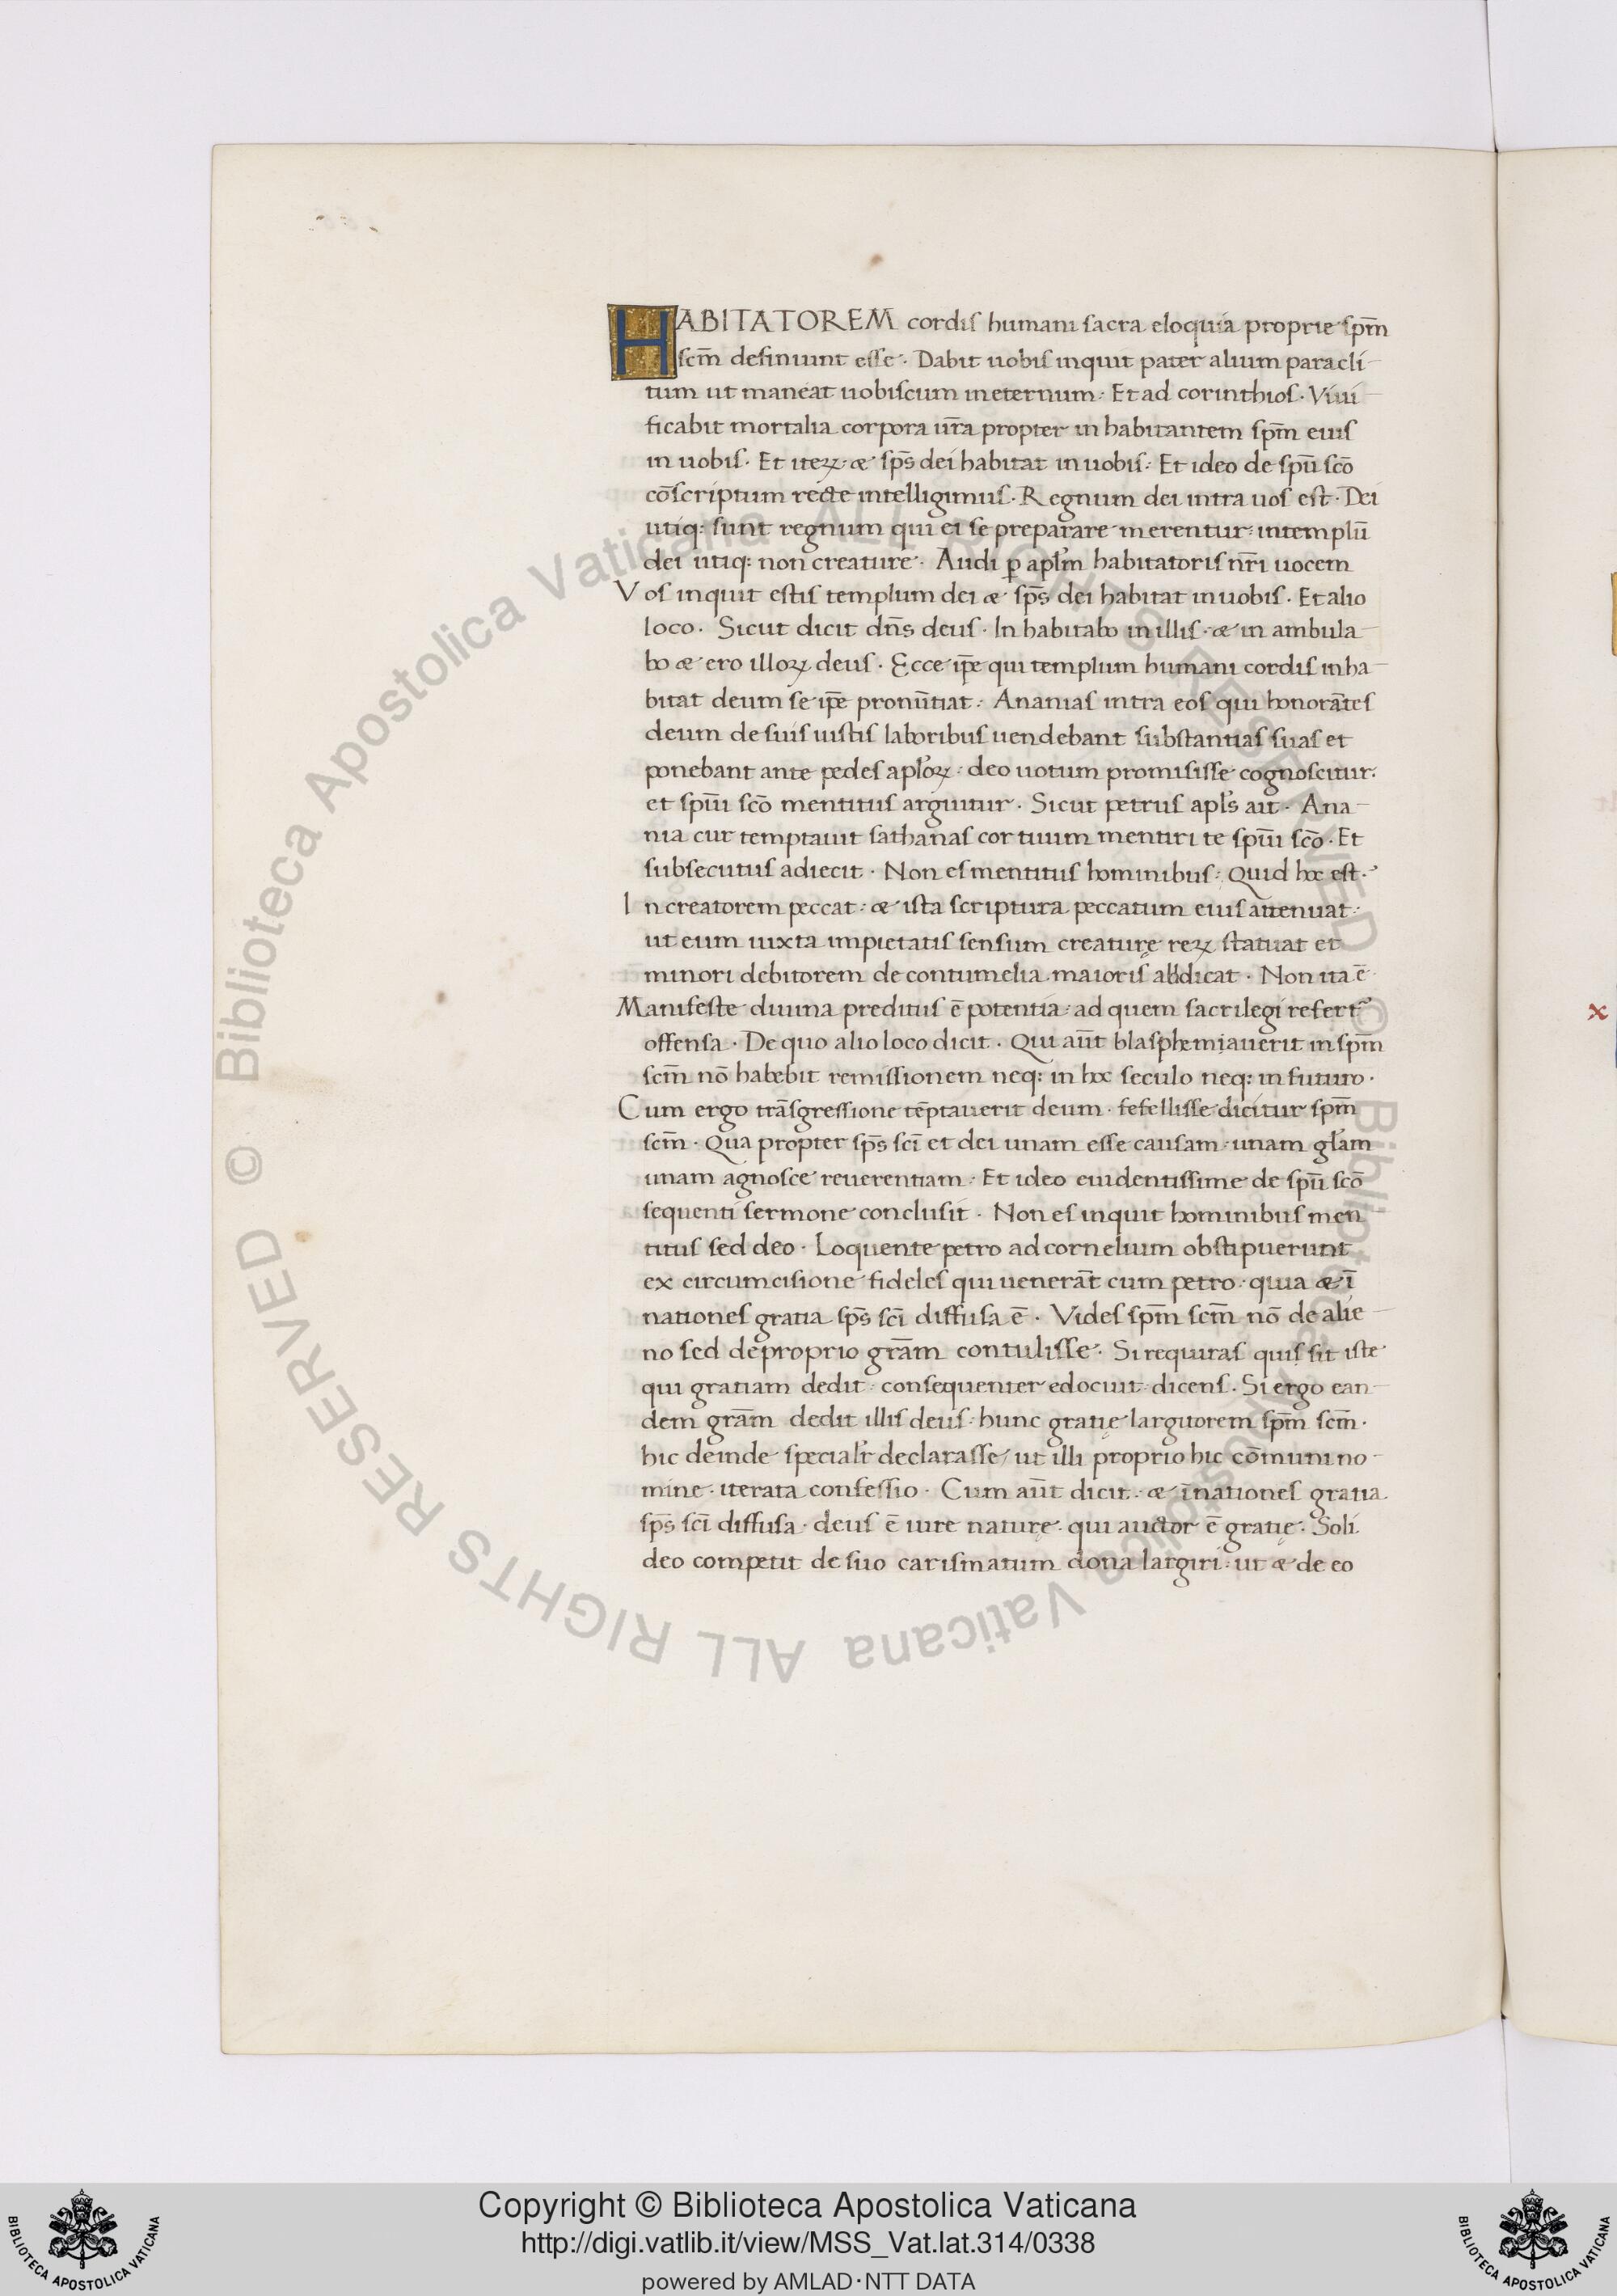 HABITATOREM cordis humani sacra eloquia proprie sp̄m
sc̄m definiunt esse. Dabit uobis inquit pater alium paracli-
tum ut maneat uobiscum in eternum: Et ad corinthios. Viui-
ficabit mortalia corpora ur̄a propter in habitantem sp̄m eius
in uobis. Et iteꝝ: æ sp̄s dei habitat in uobis: Et ideo de spū scō
cōscriptum recte intelligimus. Regnum dei intra uos est. Dei
utiq: sunt regnum qui ei se preparare merentur: in templū
dei utiq: non creature. Audi ꝑ apl̄m habitatoris nr̄i uocem
Vos inquit estis templum dei æ sp̄s dei habitat in uobis. Et alio
loco. Sicut dicit dn̄s deus. In habitabo in illis. æ in ambula-
bo æ ero illoꝝ deus. Ecce ip̄e qui templum humani cordis inha-
bitat deum se ip̄e pronūtiat: Ananias intra eos qui honorātes
deum de suis iustis laboribus uendebant substantias suas et
ponebant ante pedes apl̄oꝝ: deo uotum promisisse cognoscitur.
et spūi scō mentitus arguitur. Sicut petrus apl̄s ait. Ana-
nia cur temptauit sathanas cor tuum mentiri te spūi scō. Et
subsecutus adiecit. Non es mentitus hominibus: Quid hoc est.
In creatorem peccat: æ ista scriptura peccatum eius attenuat:
ut eum iuxta impietatis sensum creaturę reꝝ statuat et
minori debitorem de contumelia maioris abdicat. Non ita ē
Manifeste diuina preditus ē potentia: ad quem sacrilegi refert᷑
offensa. De quo alio loco dicit. Qui aūt blasphemiauerit in sp̄m
sc̄m nō habebit remissionem neq: in hoc seculo neq: in futuro.
Cum ergo trāsgressione tēptauerit deum. fefellisse dicitur sp̄m
sc̄m. Qua propter sp̄s sc̄i et dei unam esse causam: unam gl̄am
unam agnosce reuerentiam: Et ideo euidentissime de spū scō
sequenti sermone conclusit. Non es inquit hominibus men-
titus sed deo. Loquente petro ad cornelium obstipuerunt
ex circumcisione fideles qui uenerāt cum petro. quia æ ī
nationes gratia sp̄s sc̄i diffusa ē. Vides sp̄m sc̄m nō de alie-
no sed de proprio grām contulisse. Si requiras quis sit iste
qui gratiam dedit: consequenter edocuit dicens. Si ergo ean-
dem grām dedit illis deus: hunc gratię largitorem sp̄m sc̄m.
hic deinde specialr̄ declarasse, ut illi proprio hic cōmuni no-
mine. iterata confessio. Cum aūt dicit: æ ī nationes gratia
sp̄s sc̄i diffusa. deus ē iure naturę. qui auctor ē gratię. Soli
deo competit de suo carismatum dona largiri: ut æ de eo
x
© Biblioteca Apostolica Vaticana ALL RIGHTS RESERVED © Biblioteca Apostolica Vaticana ALL RIGHTS RESERVED
Copyright © Biblioteca Apostolica Vaticana
http://digi.vatlib.it/view/MSS_Vat.lat.314/0338
powered by AMLAD·NTT DATA
BIBLIOTECA APOSTOLICA VATICANA
BIBLIOTECA APOSTOLICA VATICANA